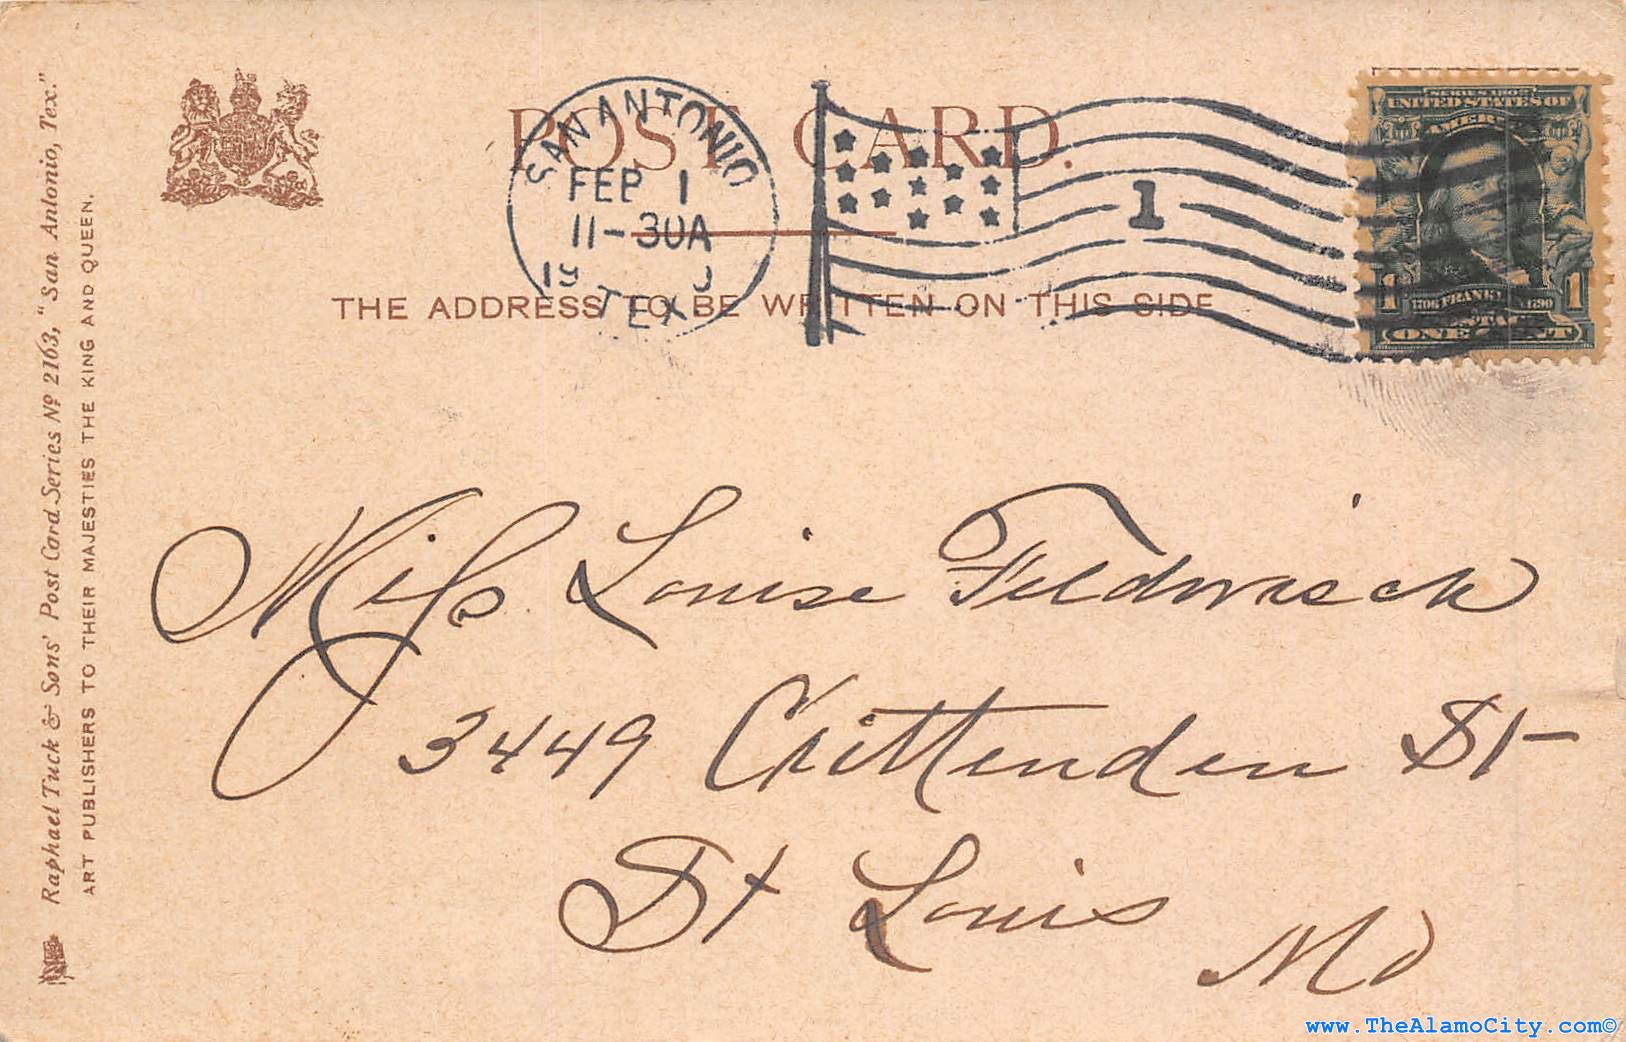 POST CARD.
THE ADDRESS TO BE WRITTEN ON THIS SIDE
SAN ANTONIO
FEB 1
11-30A
19
TEX
1
SERIES 1902
UNITED STATES OF
AMERICA
1 1706 FRANKLIN 1790 1
POSTAGE
ONE CENT
Raphael Tuck & Sons' Post Card Series Nº 2163, "San Antonio, Tex."
ART PUBLISHERS TO THEIR MAJESTIES THE KING AND QUEEN.
Miss Louise
3449 Crittenden St-
St Louis
Mo
www.TheAlamoCity.com©